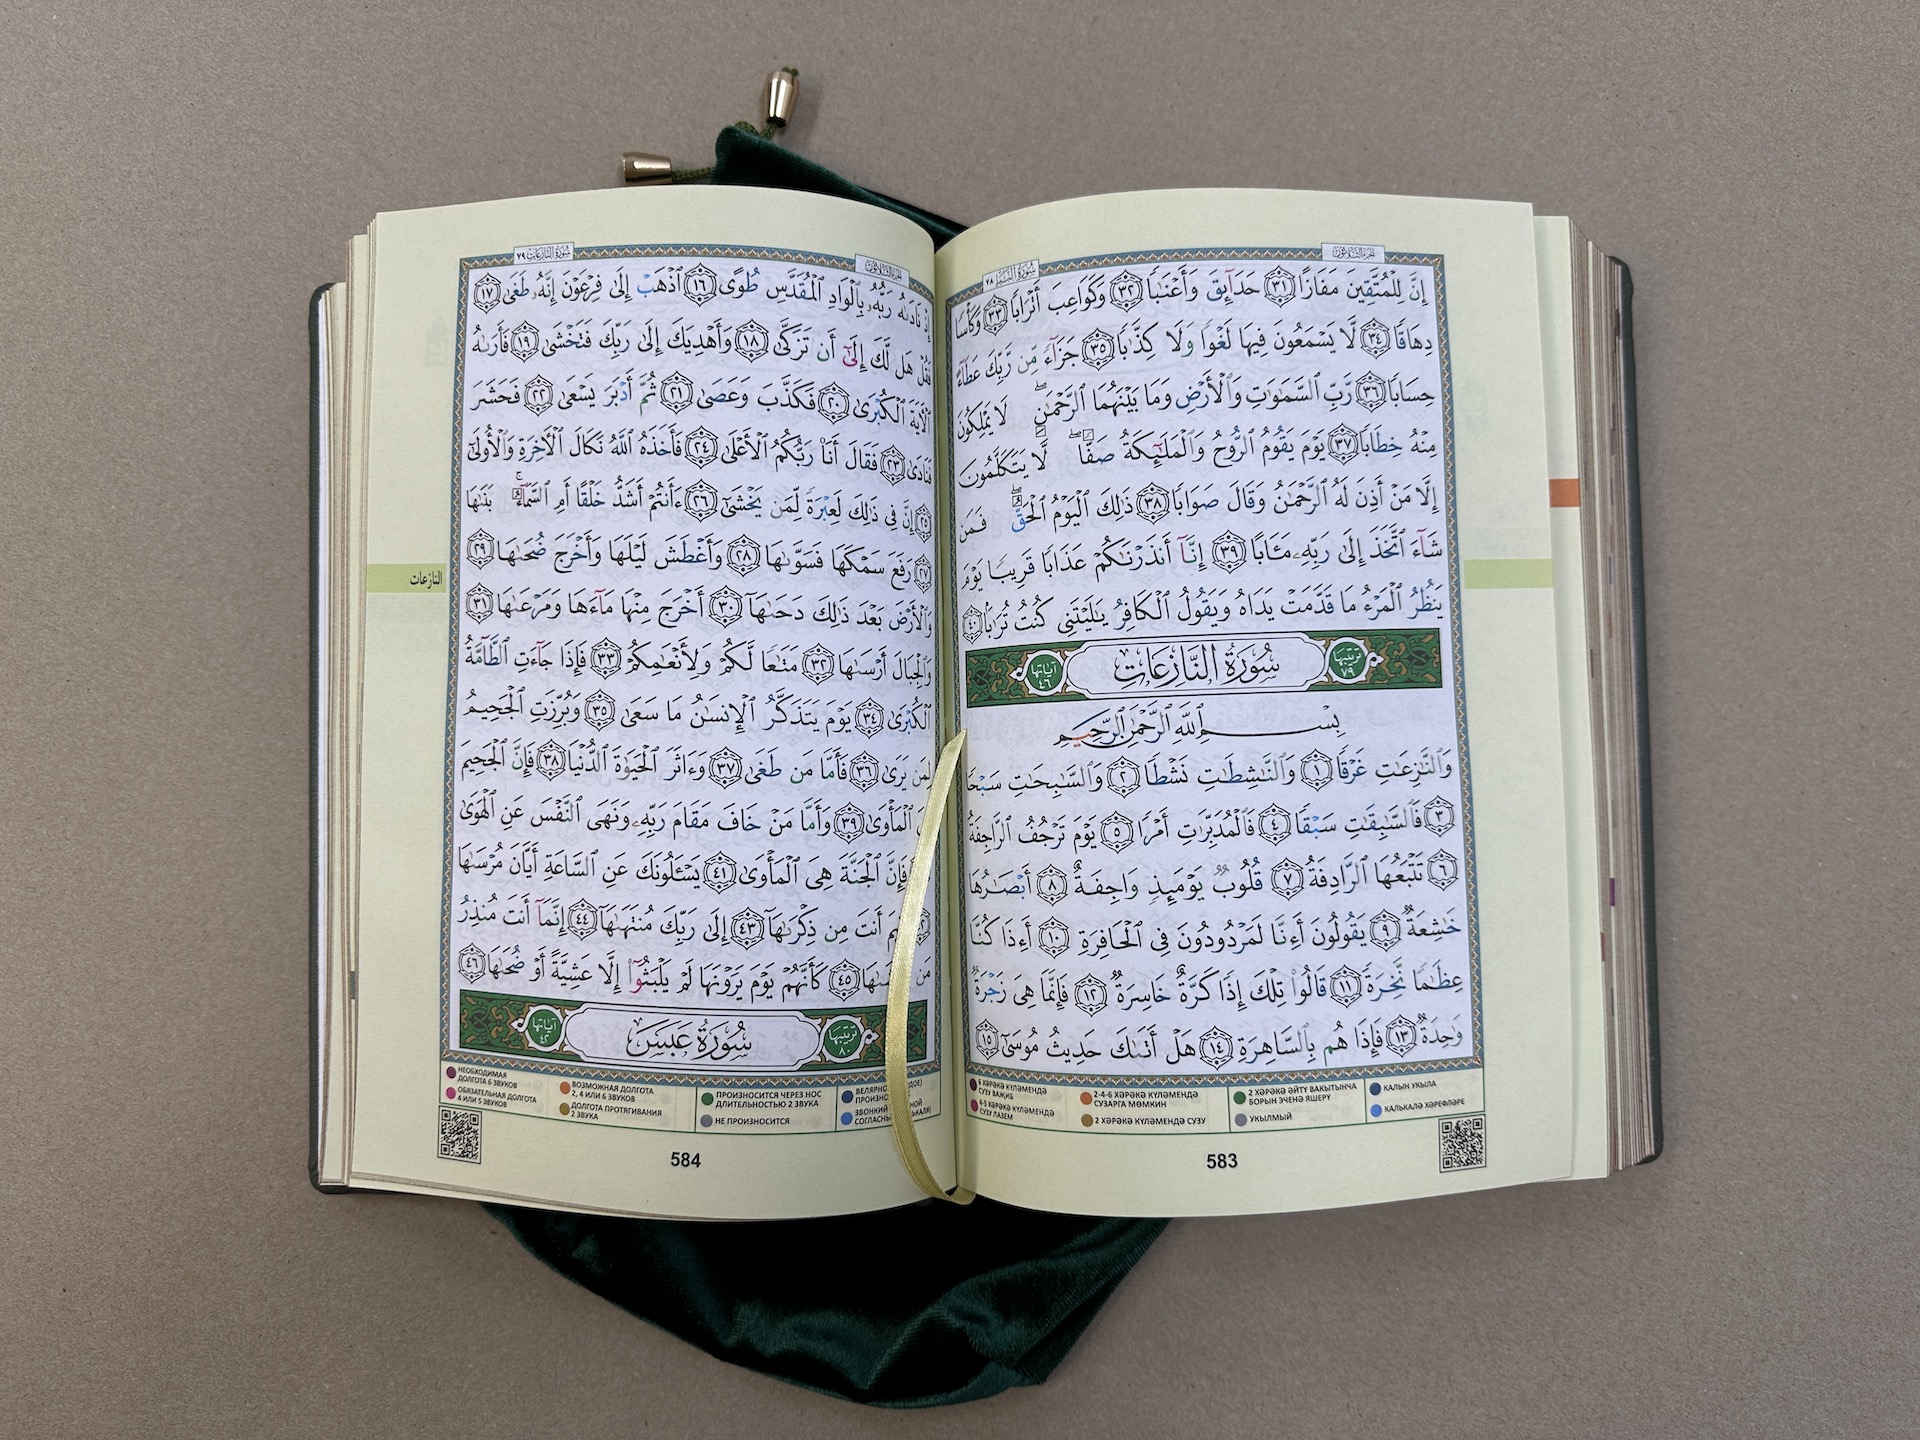 الجزء الثلاثون
سورة النبإ ٧٨
إِنَّ لِلْمُتَّقِينَ مَفَازًا ٣١ حَدَآئِقَ وَأَعْنَٰبًا ٣٢ وَكَوَاعِبَ أَتْرَابًا ٣٣ وَكَأْسًا
دِهَاقًا ٣٤ لَّا يَسْمَعُونَ فِيهَا لَغْوًا وَلَا كِذَّٰبًا ٣٥ جَزَآءً مِّن رَّبِّكَ عَطَآءً
حِسَابًا ٣٦ رَّبِّ السَّمَٰوَٰتِ وَالْأَرْضِ وَمَا بَيْنَهُمَا الرَّحْمَٰنِ لَا يَمْلِكُونَ
مِنْهُ خِطَابًا ٣٧ يَوْمَ يَقُومُ الرُّوحُ وَالْمَلَٰٓئِكَةُ صَفًّا لَّا يَتَكَلَّمُونَ
إِلَّا مَنْ أَذِنَ لَهُ الرَّحْمَٰنُ وَقَالَ صَوَابًا ٣٨ ذَٰلِكَ الْيَوْمُ الْحَقُّ فَمَن
شَآءَ اتَّخَذَ إِلَىٰ رَبِّهِۦ مَـَٔابًا ٣٩ إِنَّآ أَنذَرْنَٰكُمْ عَذَابًا قَرِيبًا يَوْمَ
يَنظُرُ الْمَرْءُ مَا قَدَّمَتْ يَدَاهُ وَيَقُولُ الْكَافِرُ يَٰلَيْتَنِى كُنتُ تُرَٰبًا ٤٠
ترتيبها ٧٩ سُورَةُ النَّازِعَاتِ آياتها ٤٦
بِسْمِ اللَّهِ الرَّحْمَٰنِ الرَّحِيمِ
وَالنَّٰزِعَٰتِ غَرْقًا ١ وَالنَّٰشِطَٰتِ نَشْطًا ٢ وَالسَّٰبِحَٰتِ سَبْحًا
٣ فَالسَّٰبِقَٰتِ سَبْقًا ٤ فَالْمُدَبِّرَٰتِ أَمْرًا ٥ يَوْمَ تَرْجُفُ الرَّاجِفَةُ
٦ تَتْبَعُهَا الرَّادِفَةُ ٧ قُلُوبٌ يَوْمَئِذٍ وَاجِفَةٌ ٨ أَبْصَٰرُهَا
خَٰشِعَةٌ ٩ يَقُولُونَ أَءِنَّا لَمَرْدُودُونَ فِى الْحَافِرَةِ ١٠ أَءِذَا كُنَّا
عِظَٰمًا نَّخِرَةً ١١ قَالُوا تِلْكَ إِذًا كَرَّةٌ خَاسِرَةٌ ١٢ فَإِنَّمَا هِىَ زَجْرَةٌ
وَٰحِدَةٌ ١٣ فَإِذَا هُم بِالسَّاهِرَةِ ١٤ هَلْ أَتَىٰكَ حَدِيثُ مُوسَىٰ ١٥
6 ХӘРӘКӘ КҮЛӘМЕНДӘ СУЗУ ВАҖИБ
4-5 ХӘРӘКӘ КҮЛӘМЕНДӘ СУЗУ ЛАЗЕМ
2-4-6 ХӘРӘКӘ КҮЛӘМЕНДӘ СУЗАРГА МӨМКИН
2 ХӘРӘКӘ КҮЛӘМЕНДӘ СУЗУ
2 ХӘРӘКӘ ӘЙТҮ ВАКЫТЫНЧА БОРЫН ЭЧЕНӘ ЯШЕРҮ
УКЫЛМЫЙ
КАЛЫН УКЫЛА
КАЛЬКАЛӘ ХӘРЕФЛӘРЕ
583
الجزء الثلاثون
سورة النازعات ٧٩
إِذْ نَادَىٰهُ رَبُّهُۥ بِالْوَادِ الْمُقَدَّسِ طُوًى ١٦ اذْهَبْ إِلَىٰ فِرْعَوْنَ إِنَّهُۥ طَغَىٰ ١٧
فَقُلْ هَل لَّكَ إِلَىٰٓ أَن تَزَكَّىٰ ١٨ وَأَهْدِيَكَ إِلَىٰ رَبِّكَ فَتَخْشَىٰ ١٩ فَأَرَىٰهُ
الْآيَةَ الْكُبْرَىٰ ٢٠ فَكَذَّبَ وَعَصَىٰ ٢١ ثُمَّ أَدْبَرَ يَسْعَىٰ ٢٢ فَحَشَرَ
فَنَادَىٰ ٢٣ فَقَالَ أَنَا رَبُّكُمُ الْأَعْلَىٰ ٢٤ فَأَخَذَهُ اللَّهُ نَكَالَ الْآخِرَةِ وَالْأُولَىٰٓ
٢٥ إِنَّ فِى ذَٰلِكَ لَعِبْرَةً لِّمَن يَخْشَىٰٓ ٢٦ ءَأَنتُمْ أَشَدُّ خَلْقًا أَمِ السَّمَآءُ بَنَىٰهَا
٢٧ رَفَعَ سَمْكَهَا فَسَوَّىٰهَا ٢٨ وَأَغْطَشَ لَيْلَهَا وَأَخْرَجَ ضُحَىٰهَا ٢٩
وَالْأَرْضَ بَعْدَ ذَٰلِكَ دَحَىٰهَآ ٣٠ أَخْرَجَ مِنْهَا مَآءَهَا وَمَرْعَىٰهَا ٣١
وَالْجِبَالَ أَرْسَىٰهَا ٣٢ مَتَٰعًا لَّكُمْ وَلِأَنْعَٰمِكُمْ ٣٣ فَإِذَا جَآءَتِ الطَّآمَّةُ
الْكُبْرَىٰ ٣٤ يَوْمَ يَتَذَكَّرُ الْإِنسَٰنُ مَا سَعَىٰ ٣٥ وَبُرِّزَتِ الْجَحِيمُ
لِمَن يَرَىٰ ٣٦ فَأَمَّا مَن طَغَىٰ ٣٧ وَءَاثَرَ الْحَيَوٰةَ الدُّنْيَا ٣٨ فَإِنَّ الْجَحِيمَ
الْمَأْوَىٰ ٣٩ وَأَمَّا مَنْ خَافَ مَقَامَ رَبِّهِۦ وَنَهَى النَّفْسَ عَنِ الْهَوَىٰ
فَإِنَّ الْجَنَّةَ هِىَ الْمَأْوَىٰ ٤١ يَسْـَٔلُونَكَ عَنِ السَّاعَةِ أَيَّانَ مُرْسَىٰهَا
أَنتَ مِن ذِكْرَىٰهَآ ٤٣ إِلَىٰ رَبِّكَ مُنتَهَىٰهَآ ٤٤ إِنَّمَآ أَنتَ مُنذِرُ
مَن ٤٥ كَأَنَّهُمْ يَوْمَ يَرَوْنَهَا لَمْ يَلْبَثُوٓا إِلَّا عَشِيَّةً أَوْ ضُحَىٰهَا ٤٦
ترتيبها ٨٠ سُورَةُ عَبَسَ آياتها ٤٢
النازعات
НЕОБХОДИМАЯ ДОЛГОТА 6 ЗВУКОВ
ОБЯЗАТЕЛЬНАЯ ДОЛГОТА 4 ИЛИ 5 ЗВУКОВ
ВОЗМОЖНАЯ ДОЛГОТА 2, 4 ИЛИ 6 ЗВУКОВ
ДОЛГОТА ПРОТЯГИВАНИЯ 2 ЗВУКА
ПРОИЗНОСИТСЯ ЧЕРЕЗ НОС ДЛИТЕЛЬНОСТЬЮ 2 ЗВУКА
НЕ ПРОИЗНОСИТСЯ
ЗВОНКИЙ
584